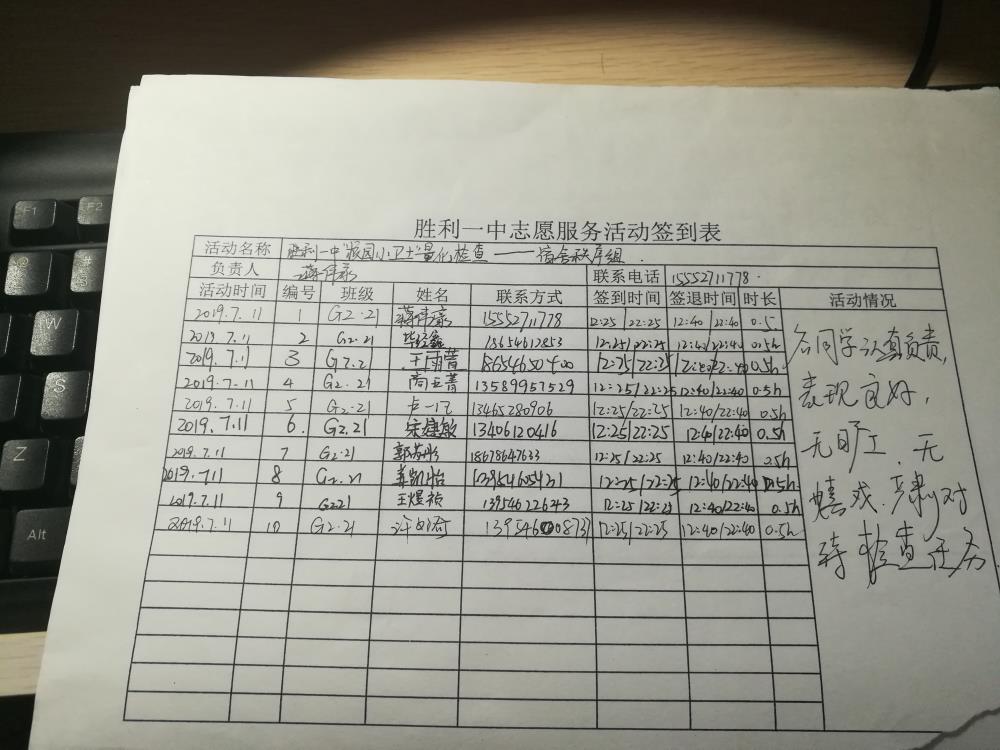 胜利一中志愿服务活动签到表
活动名称 胜利一中"校园小卫士"量化检查——宿舍秩序组
负责人 联系电话 15552711778
活动时间 编号 班级 姓名 联系方式 签到时间 签退时间 时长 活动情况
2019.7.11 1 G2.21 15552711778 12:25/22:25 12:40/22:40 0.5
2019.7.11 2 G2.21 13654612853 12:25/22:25 12:40/22:40 0.5h
2019.7.11 3 王雨菁 18654650400 12:25/22:25 12:40/22:40 0.5h
2019.7.11 4 G2.21 13589957529 12:25/22:25 12:40/22:40 0.5h
2019.7.11 5 G2.21 13465280906 12:25/22:25 12:40/22:40 0.5h
2019.7.11 6. G2.21 宋建敏 13406120416 12:25/22:25 12:40/22:40 0.5h
2019.7.11 7 G2.21 18678647633 12:25/22:25 12:40/22:40 0.5h
2019.7.11 8 姜凯怡 12:25/22:25 12:40/22:40 0.5h
2019.7.11 9 G221 王煜祯 13954622643 12:25/22:25 12:40/22:40 0.5h
2019.7.11 10 G2.21 12:25/22:25 12:40/22:40 0.5h
各同学认真负责,
表现良好,
无旷工、无
嬉戏,严肃对
待检查任务
F1
F2
@
W
S
Z
Alt